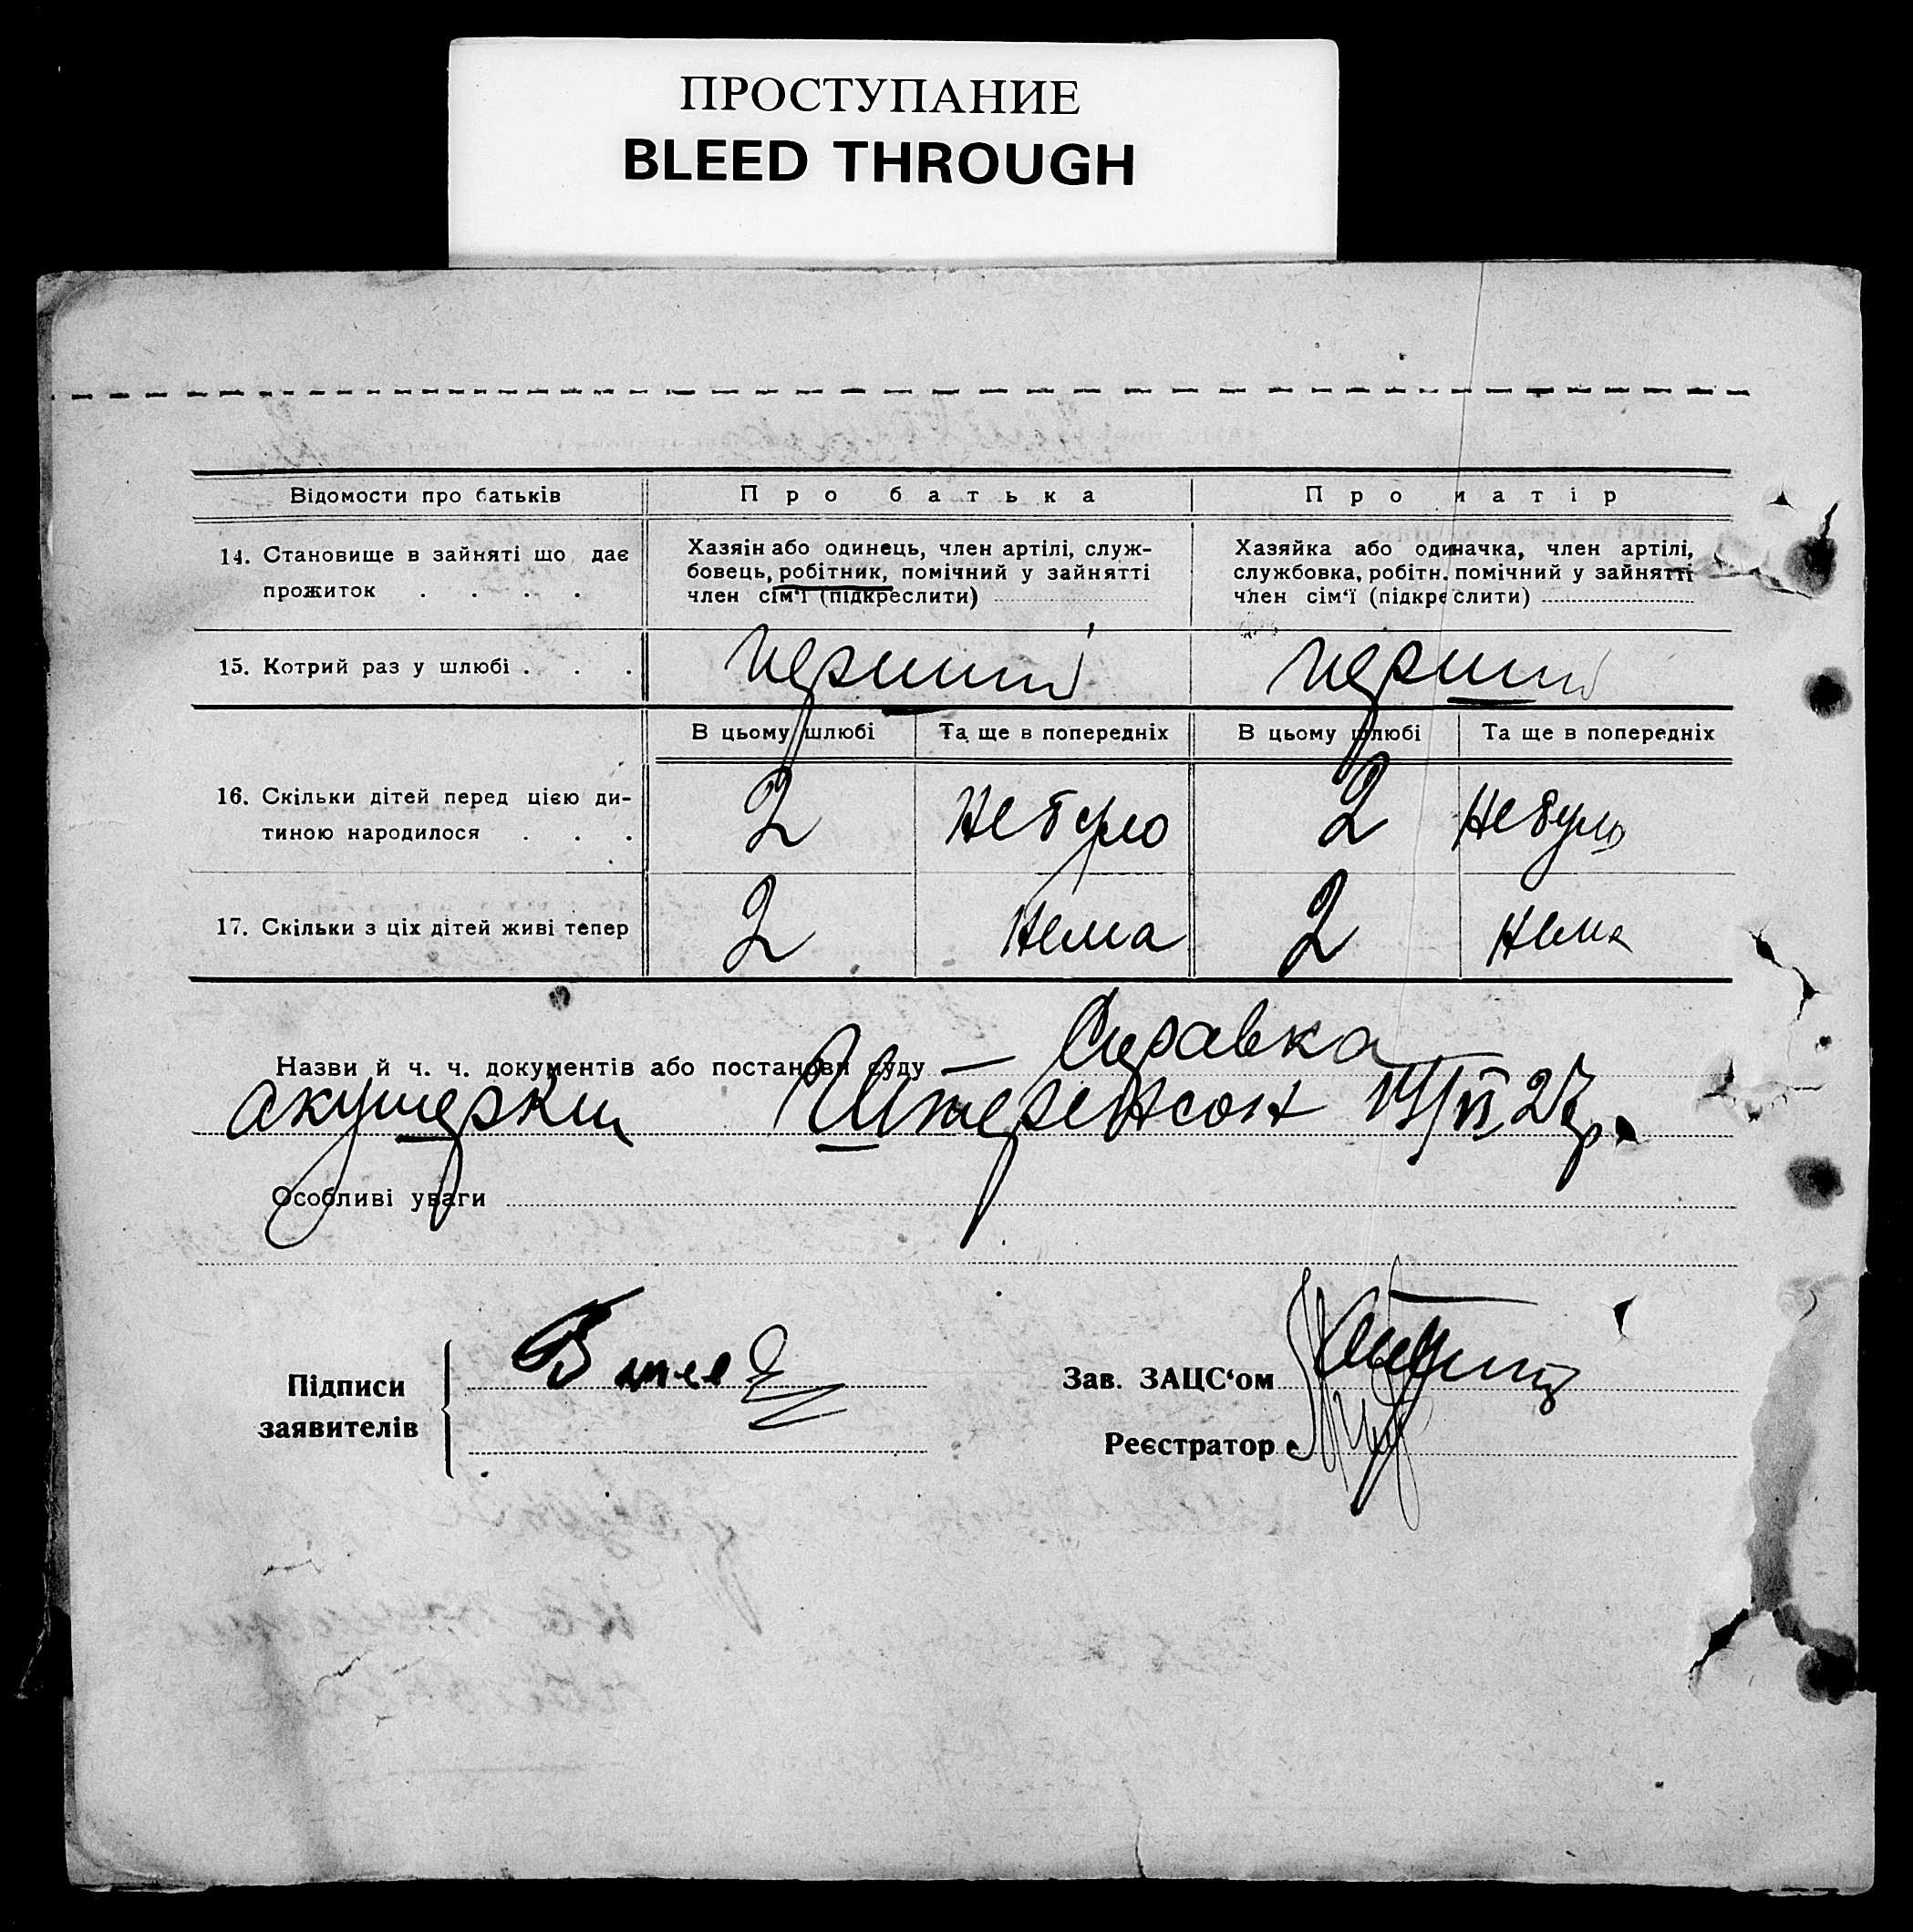 ПРОСТУПАНИЕ
BLEED THROUGH
Відомости про батьків
Про батька
Про матір
14. Становище в зайняті що дає
прожиток . . . .
Хазяін або одинець, член артілі, служ-
бовець, робітник, помічний у зайнятті
член сім'ї (підкреслити)
Хазяйка або одиначка, член артілі,
службовка, робітн. помічний у зайнятті
член сім'ї (підкреслити)
15. Котрий раз у шлюбі . . .
перший
перший
В цьому шлюбі
Та ще в попередніх
В цьому шлюбі
Та ще в попередніх
16. Скільки дітей перед цією ди-
тиною народилося . . .
2
Не було
2
Не було
17. Скільки з ціх дітей живі тепер
2
Нема
2
Нема
Назви й ч. ч. документів або постанови суду — Справка
акушерки Штеренсон VI 27 р.
Особливі уваги
Підписи
заявителів
Зав. ЗАЦС'ом
Реєстратор